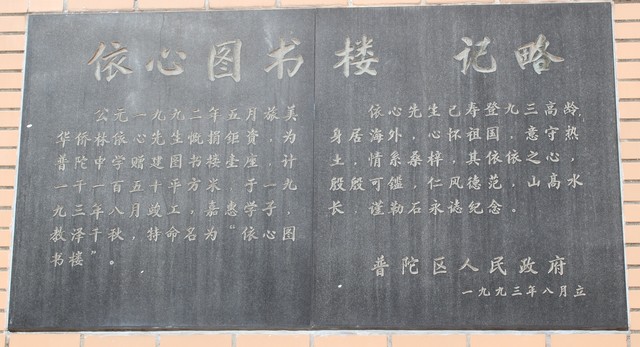 依心图书楼 记略
公元一九九二年五月旅美
华侨林依心先生慨捐钜资，为
普陀中学赠建图书楼壹座，计
一千一百五十平方米，于一九
九三年八月竣工，嘉惠学子，
教泽千秋，特命名为“依心图
书楼”。
依心先生已寿登九三高龄，
身居海外，心怀祖国，意守热
土，情系桑梓，其依依之心，
殷殷可鉴，仁风德范，山高水
长，谨勒石永誌纪念。
普陀区人民政府
一九九三年八月立